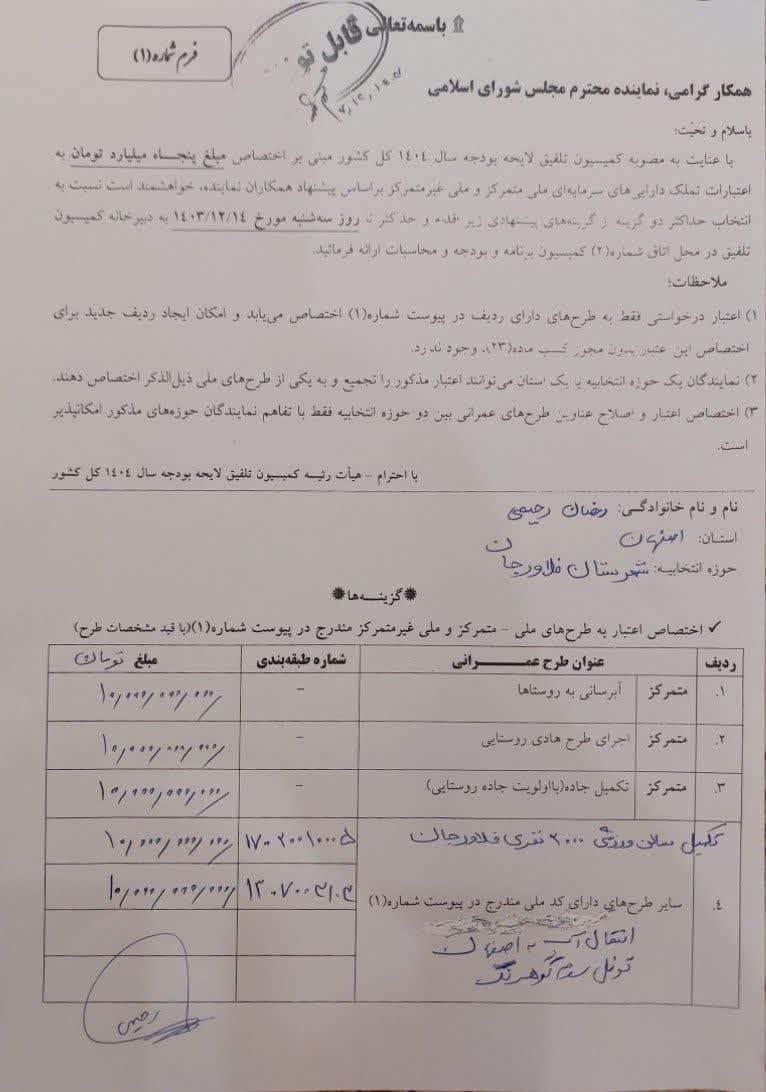 باسمه‌تعالی
فرم شماره(۱)
قابل
همکار گرامی، نماینده محترم مجلس شورای اسلامی
باسلام و تحیّت؛
با عنایت به مصوبه کمیسیون تلفیق لایحه بودجه سال ۱۴۰۴ کل کشور مبنی بر اختصاص مبلغ پنجاه میلیارد تومان به
اعتبارات تملک دارایی‌های سرمایه‌ای ملی متمرکز و ملی غیرمتمرکز براساس پیشنهاد همکاران نماینده، خواهشمند است نسبت به
انتخاب حداکثر دو گزینه از گزینه‌های پیشنهادی زیر اقدام و حداکثر تا روز سه‌شنبه مورخ ۱۴۰۳/۱۲/۱۴ به دبیرخانه کمیسیون
تلفیق در محل اتاق شماره(۲) کمیسیون برنامه و بودجه و محاسبات ارائه فرمائید.
ملاحظات؛
۱) اعتبار درخواستی فقط به طرح‌های دارای ردیف در پیوست شماره(۱) اختصاص می‌یابد و امکان ایجاد ردیف جدید برای
اختصاص این اعتبار بدون مجوز کسب ماده(۲۳)، وجود ندارد.
۲) نمایندگان یک حوزه انتخابیه یا یک استان می‌توانند اعتبار مذکور را تجمیع و به یکی از طرح‌های ملی ذیل‌الذکر اختصاص دهند.
۳) اختصاص اعتبار و اصلاح عناوین طرح‌های عمرانی بین دو حوزه انتخابیه فقط با تفاهم نمایندگان حوزه‌های مذکور امکانپذیر
است.
با احترام – هیأت رئیسه کمیسیون تلفیق لایحه بودجه سال ۱۴۰۴ کل کشور
نام و نام خانوادگی: رمضان رحیمی
استان: اصفهان
حوزه انتخابیه: شهرستان فلاورجان
گزینه‌ها
✓ اختصاص اعتبار به طرح‌های ملی – متمرکز و ملی غیرمتمرکز مندرج در پیوست شماره(۱)(با قید مشخصات طرح)
ردیف عنوان طرح عمرانی شماره طبقه‌بندی مبلغ تومان
۱. متمرکز آبرسانی به روستاها - ۱۰/۰۰۰/۰۰۰/۰۰۰
۲. متمرکز اجرای طرح هادی روستایی - ۱۰/۰۰۰/۰۰۰/۰۰۰
۳. متمرکز تکمیل جاده(بااولویت جاده روستایی) - ۱۰/۰۰۰/۰۰۰/۰۰۰
تکمیل سالن ورزشی ۳۰۰۰ نفری فلاورجان ۱۰/۰۰۰/۰۰۰/۰۰۰
۴. سایر طرح‌های دارای کد ملی مندرج در پیوست شماره(۱) ۱۰/۰۰۰/۰۰۰/۰۰۰
انتقال آب به اصفهان
تونل سوم کوهرنگ
رحیمی